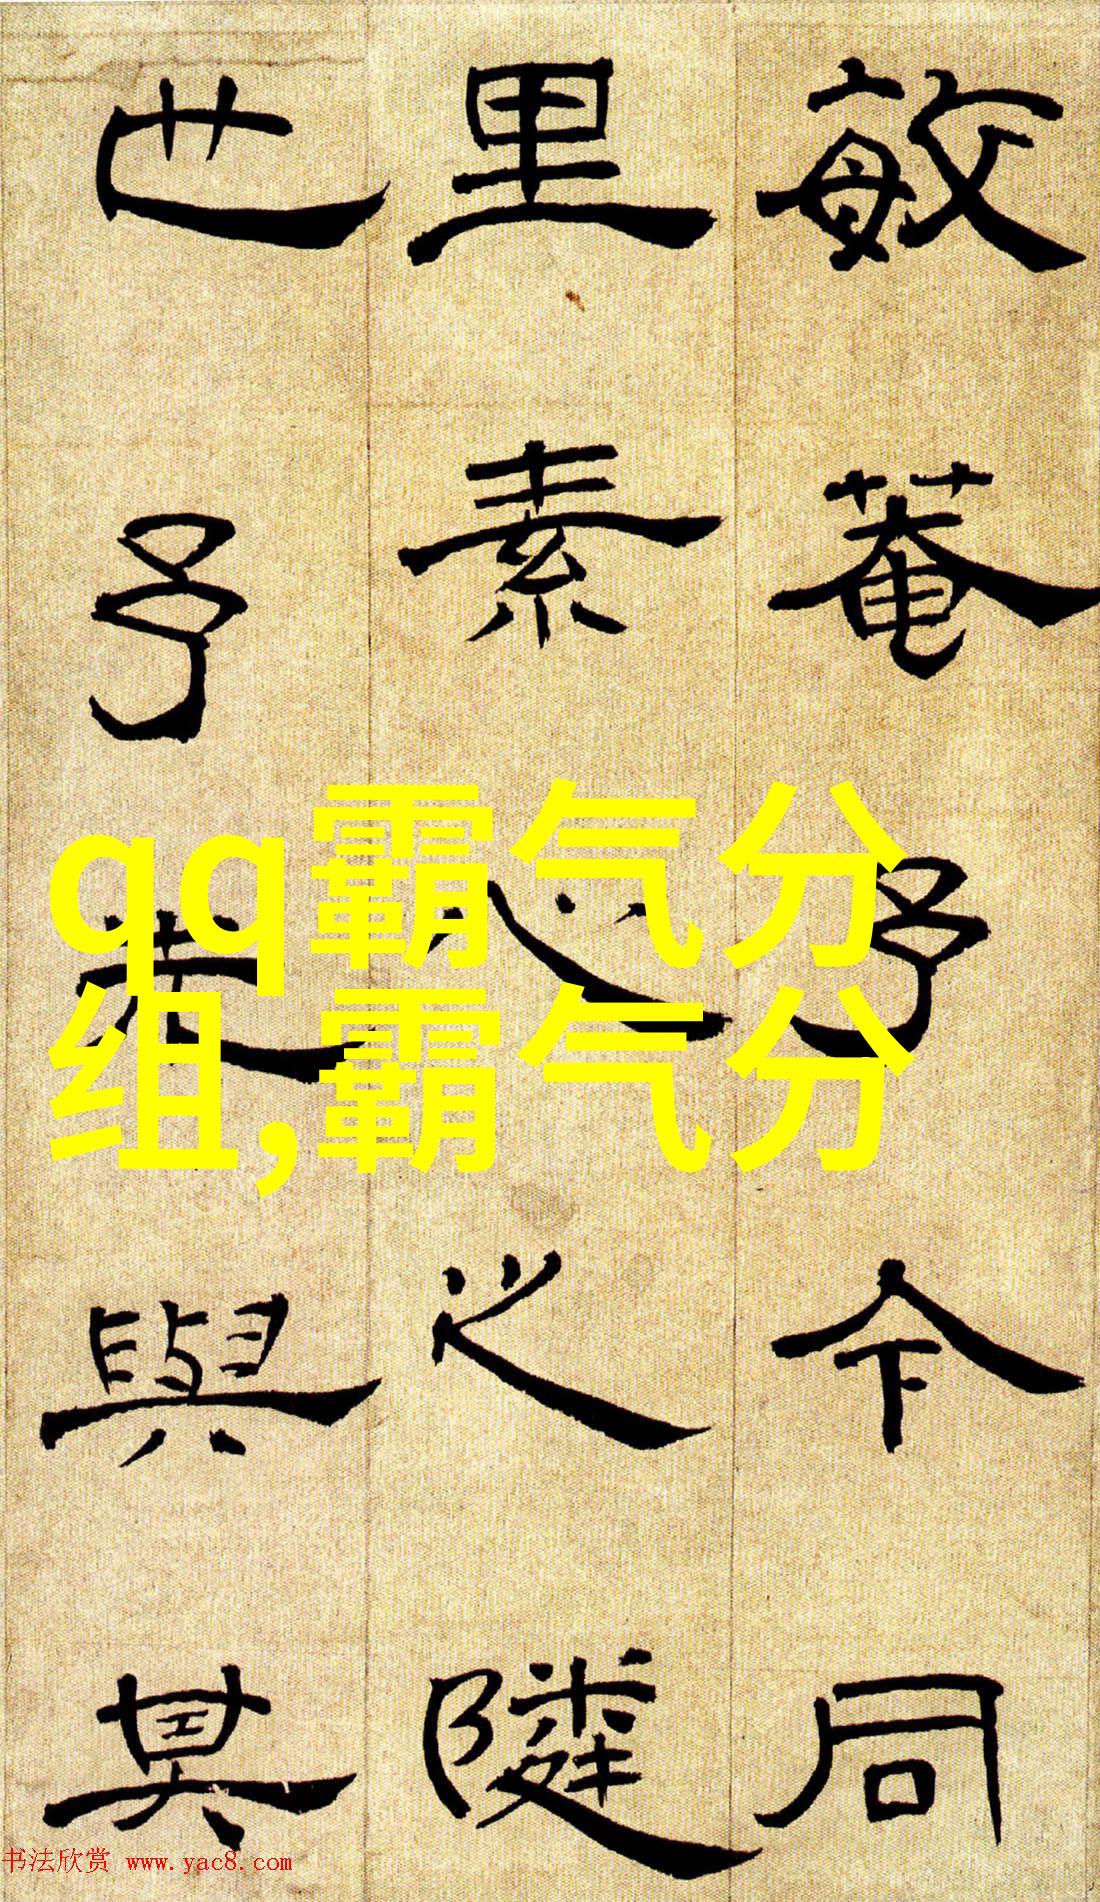 敏菴予今同
里素心之隨
世予老與其
qq霸气分
组,霸气分
书法欣赏 www.yac8.com